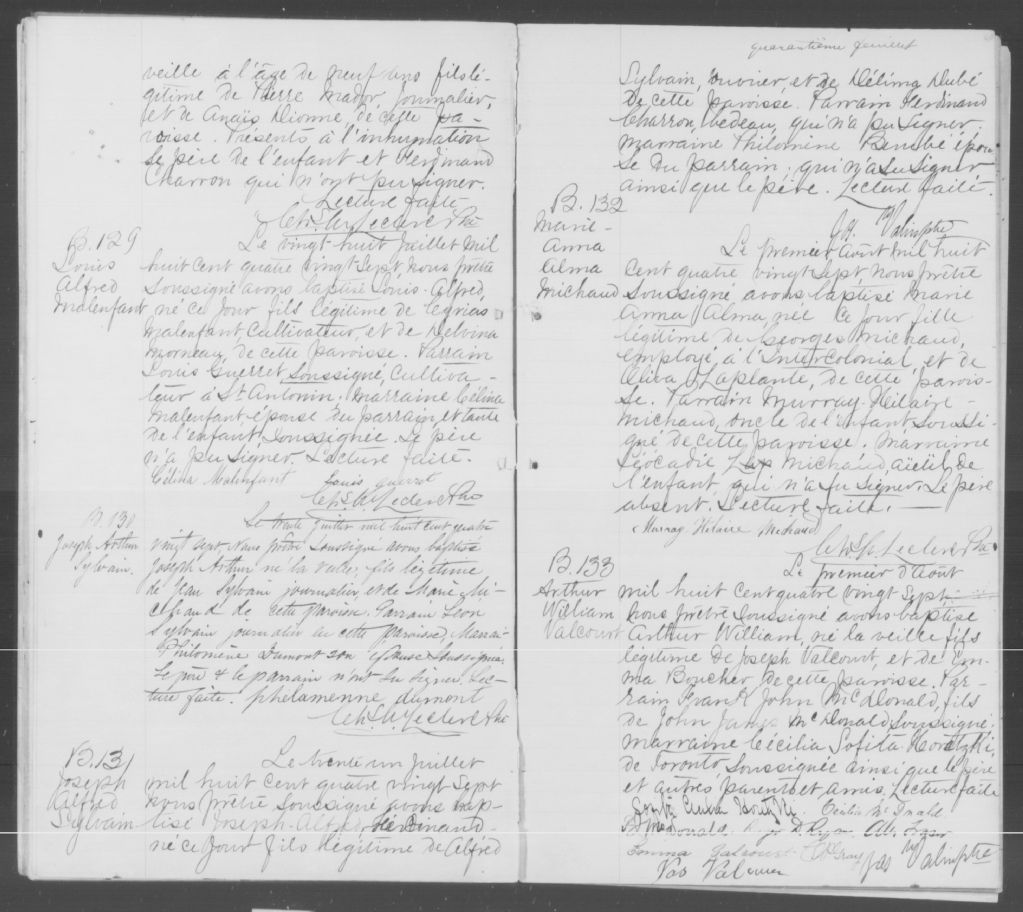 veille à l'âge de neuf ans fils lé-
gitime de Pierre Mador, Journalier,
et de Anaïs Dionne, de cette pa-
roisse. Présents à l'inhumation
le père de l'enfant et Ferdinand
Charron qui n'ont pu signer.
Lecture faite
Leclerc Ptre
B. 129
Louis
Alfred
Malenfant
Le vingt-huit Juillet mil
huit cent quatre vingt sept, nous prêtre
soussigné avons baptisé Louis-Alfred,
né ce jour fils légitime de
Malenfant, Cultivateur, et de Delvina
Morneau, de cette paroisse. Parrain
Louis Guerret soussigné, cultiva-
teur à St Antonin. Marraine Célina
Malenfant épouse du parrain, et tante
de l'enfant, soussignée. Le père
n'a pu signer. Lecture faite.
Célina Malenfant
Louis Guerret
Leclerc Ptre
B. 130
Joseph Arthur
Sylvain.
Le trente Juillet mil huit cent quatre
vingt sept. Nous prêtre soussigné avons baptisé
Joseph Arthur né la veille, fils légitime
de Jean Sylvain journalier, et de Marie Mi-
chaud de cette paroisse. Parrain Léon
Sylvain journalier de cette paroisse, Marrai-
Philomène Dumont son épouse soussignée.
Le père & le parrain n'ont su signer. Lec-
ture faite. phelamenne dumont
Leclerc Ptre
B. 131
Joseph
Alfred
Sylvain
Le trente un Juillet
mil huit cent quatre vingt sept
nous prêtre soussigné avons bap-
tisé Joseph-Alfred Ferdinand
né ce jour fils légitime de Alfred
quarantième feuillet
Sylvain, ouvrier, et de Délima Dubé
de cette paroisse. Parrain Ferdinand
Charron, bedeau, qui n'a pu signer.
Marraine Philomène Bérubé épou-
se du parrain, qui n'a su signer
ainsi que le père. Lecture faite.
B. 132
Marie-
Anna
Alma
Michaud
Le premier Août mil huit
cent quatre vingt sept nous prêtre
soussigné avons baptisé Marie
Anna Alma, née ce jour fille
légitime de Georges Michaud,
employé à l'Intercolonial, et de
Laplante, de cette parois-
se. Parrain Murray-Hilaire-
Michaud, oncle de l'enfant soussi-
gné de cette paroisse. Marraine
Léocadie Michaud aïeule de
l'enfant, qui n'a su signer. Le père
absent. Lecture faite.
Murray Hilaire Michaud
Leclerc Ptre
B. 133
Arthur
William
Valcourt
Le premier d'Août
mil huit cent quatre vingt sept
nous prêtre soussigné avons baptisé
Arthur William, né la veille fils
légitime de Joseph Valcourt, et de Em-
ma Boucher de cette paroisse. Par-
rain Frank John McDonald, fils
de John James McDonald soussigné.
Marraine Cécilia Sofita
de Toronto, soussignée ainsi que le père
et autres parents et amis. Lecture faite
Emma Valcourt